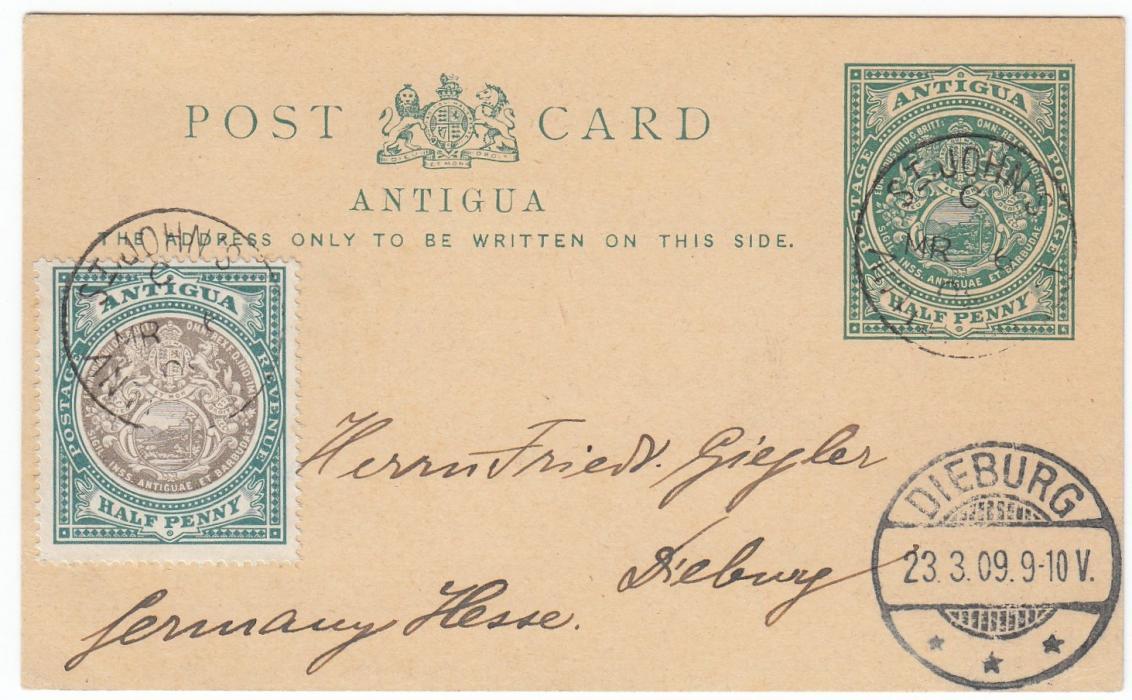 POST CARD
DIEU ET MON DROIT
ANTIGUA
THE ADDRESS ONLY TO BE WRITTEN ON THIS SIDE.
ANTIGUA
POSTAGE
POSTAGE
HALF PENNY
ST. JOHN'S
C
MR
ANTIGUA
POSTAGE REVENUE
SIGIL: INSS. ANTIGUAE ET BARBUDAE
HALF PENNY
ST. JOHN'S
C
MR
Herrn Friedr. Giegler
Dieburg
Germany Hesse.
DIEBURG
23.3.09.9-10V.